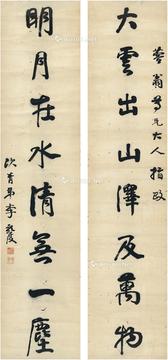 大雲出山澤及萬物
翁尊兄大人指政
明月在水清無一塵
弟李